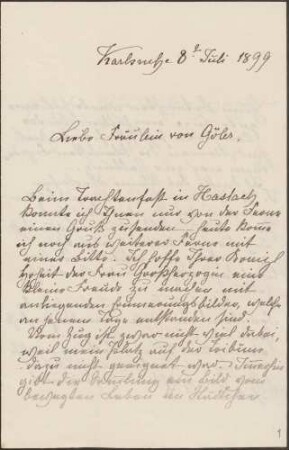 Karlsruhe 8t Juli 1899
Liebe Fräulein von Göler.
Beim Trachtenfest in Haslach
konnte ich Ihnen nur von der Ferne
einen Gruß zusenden. heute komme
ich noch aus weiterer Ferne mit
einer Bitte. Ich hoffe Ihrer Königl
hoheit der Frau Großherzogin eine
kleine Freude zu machen mit
anliegenden Erinnerungsbilder, welche
an jenem Tage entstanden sind.
Vom Zug ist zwar nicht viel dabei,
weil mein Platz auf der Tribüne
dazu nicht geeignet war. Immerhin
gibt die Sammlung ein Bild vom
bewegten Leben im Städtchen
1